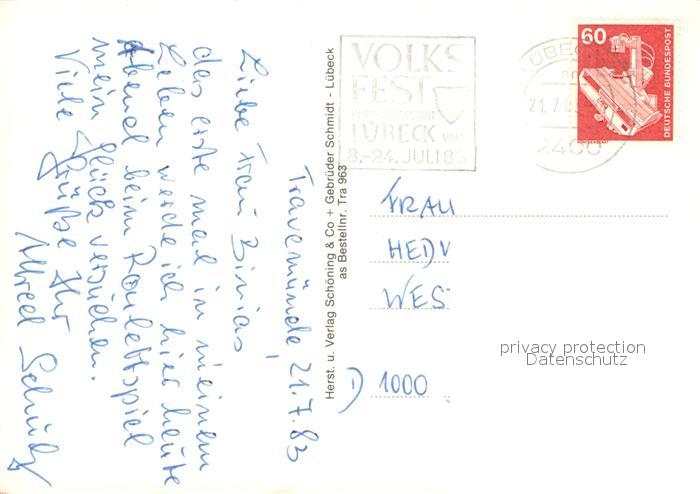 Travemünde, 21.7.83
Liebe Frau Binias,
das erste mal in meinem
Leben werde ich hier heute
Abend beim Roulettspiel
mein Glück versuchen.
Viele Grüße Ihr
Alfred
Herst. u. Verlag Schöning & Co + Gebrüder Schmidt - Lübeck
as Bestellnr. Tra 963
VOLKS
FEST
LÜBECK VOM
8.-24. JULI 83
21.7.8
2400
60
DEUTSCHE BUNDESPOST
FRAU
HEDW
WES
D 1000
privacy protection
Datenschutz